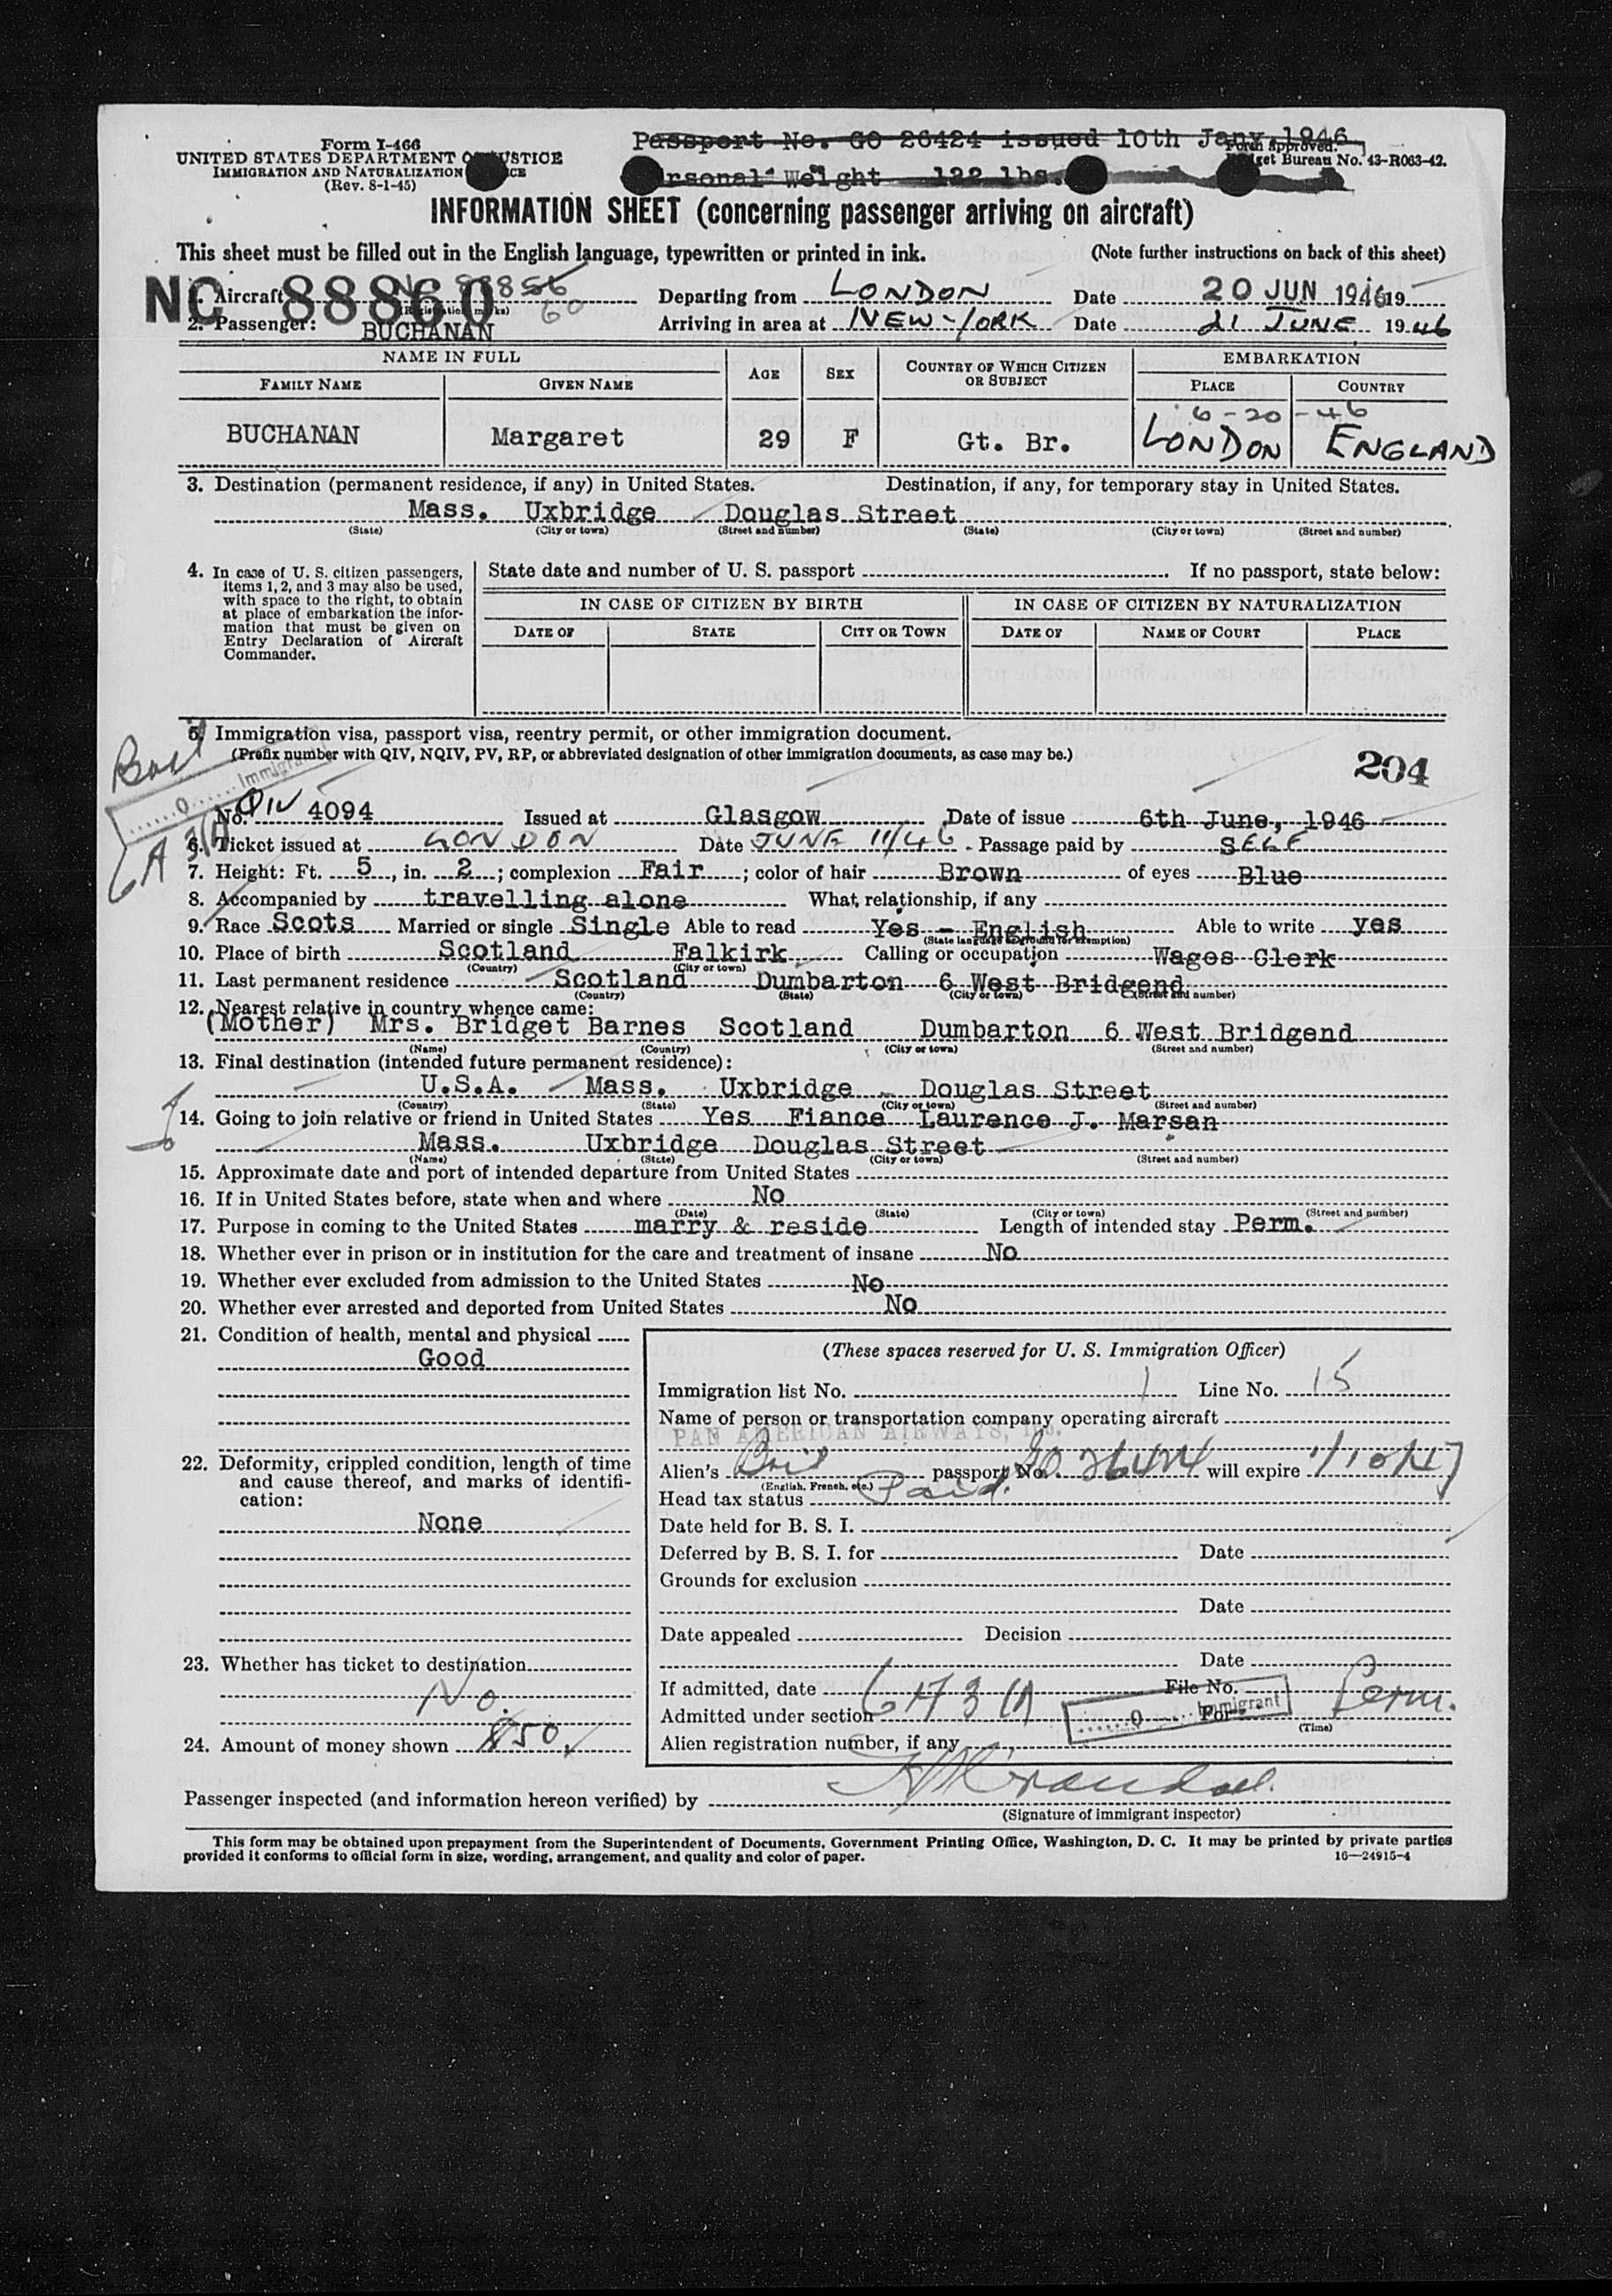 Form I-466
UNITED STATES DEPARTMENT OF JUSTICE
IMMIGRATION AND NATURALIZATION
(Rev. 8-1-45)
Passport No. GO 26424 issued 10th Jany. 1946
Form approved.
Budget Bureau No. 43-R063-42.
Personal Weight 122 lbs.
INFORMATION SHEET (concerning passenger arriving on aircraft)
This sheet must be filled out in the English language, typewritten or printed in ink. (Note further instructions on back of this sheet)
NC 88860
1. Aircraft 88856 60 Departing from LONDON Date 20 JUN 1946 19
(Registration marks)
2. Passenger: BUCHANAN Arriving in area at NEW-YORK Date 21 JUNE 1946
NAME IN FULL AGE SEX COUNTRY OF WHICH CITIZEN OR SUBJECT EMBARKATION
FAMILY NAME GIVEN NAME PLACE COUNTRY
6-20-46
BUCHANAN Margaret 29 F Gt. Br. LONDON ENGLAND
3. Destination (permanent residence, if any) in United States. Destination, if any, for temporary stay in United States.
Mass. Uxbridge Douglas Street
(State) (City or town) (Street and number) (State) (City or town) (Street and number)
4. In case of U. S. citizen passengers, items 1, 2, and 3 may also be used, with space to the right, to obtain at place of embarkation the information that must be given on Entry Declaration of Aircraft Commander.
State date and number of U. S. passport If no passport, state below:
IN CASE OF CITIZEN BY BIRTH IN CASE OF CITIZEN BY NATURALIZATION
DATE OF STATE CITY OR TOWN DATE OF NAME OF COURT PLACE
5. Immigration visa, passport visa, reentry permit, or other immigration document.
(Prefix number with QIV, NQIV, PV, RP, or abbreviated designation of other immigration documents, as case may be.)
204
0 Immigrant
No. QIV 4094 Issued at Glasgow Date of issue 6th June, 1946
6. Ticket issued at LONDON Date JUNE 11/46 Passage paid by SELF
7. Height: Ft. 5, in. 2; complexion Fair; color of hair Brown of eyes Blue
8. Accompanied by travelling alone What relationship, if any
9. Race Scots Married or single Single Able to read Yes - English Able to write yes
(State language or ground for exemption)
10. Place of birth Scotland Falkirk Calling or occupation Wages Clerk
(Country) (City or town)
11. Last permanent residence Scotland Dumbarton 6 West Bridgend
(Country) (State) (City or town) (Street and number)
12. Nearest relative in country whence came:
(Mother) Mrs. Bridget Barnes Scotland Dumbarton 6 West Bridgend
(Name) (Country) (City or town) (Street and number)
13. Final destination (intended future permanent residence):
U.S.A. Mass. Uxbridge Douglas Street
(Country) (State) (City or town) (Street and number)
14. Going to join relative or friend in United States Yes Fiance Laurence J. Marsan
Mass. Uxbridge Douglas Street
(Name) (State) (City or town) (Street and number)
15. Approximate date and port of intended departure from United States
16. If in United States before, state when and where No
(Date) (State) (City or town) (Street and number)
17. Purpose in coming to the United States marry & reside Length of intended stay Perm.
18. Whether ever in prison or in institution for the care and treatment of insane No
19. Whether ever excluded from admission to the United States No
20. Whether ever arrested and deported from United States No
21. Condition of health, mental and physical
Good
22. Deformity, crippled condition, length of time and cause thereof, and marks of identification:
None
23. Whether has ticket to destination
No.
24. Amount of money shown $50.
(These spaces reserved for U. S. Immigration Officer)
Immigration list No. 1 Line No. 15
Name of person or transportation company operating aircraft
PAN AMERICAN AIRWAYS, Inc.
Alien's Brit passport No. GO 26424 will expire 1/10/47
(English, French, etc.)
Head tax status Paid.
Date held for B. S. I.
Deferred by B. S. I. for Date
Grounds for exclusion
Date
Date appealed Decision
Date
If admitted, date File No.
Admitted under section For Perm.
0 Immigrant
(Time)
Alien registration number, if any
Passenger inspected (and information hereon verified) by
(Signature of immigrant inspector)
This form may be obtained upon prepayment from the Superintendent of Documents, Government Printing Office, Washington, D. C. It may be printed by private parties
provided it conforms to official form in size, wording, arrangement, and quality and color of paper. 16—24915-4